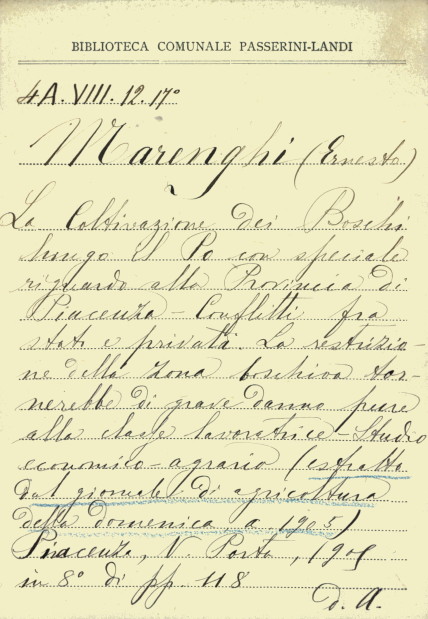 BIBLIOTECA COMUNALE PASSERINI-LANDI
4A. VIII. 12. 17°
Marenghi (Ernesto)
La Coltivazione dei Boschi
lungo il Po con speciale
riguardo alla Provincia di
Piacenza - Conflitti fra
stato e privati. La restrizio-
ne della zona boschiva tor-
nerebbe di grave danno pure
alla classe lavoratrice - Studio
economico-agrario (estratto
dal giornale di agricoltura
della domenica a. 1905)
Piacenza, V. Porta, 1905
in 8° di pp. 118
d. A.